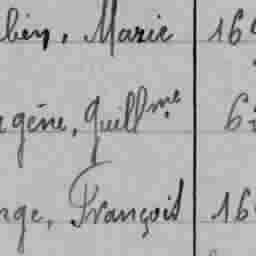 bin, Marie 16
gène, Guillme 6
nge, François 16